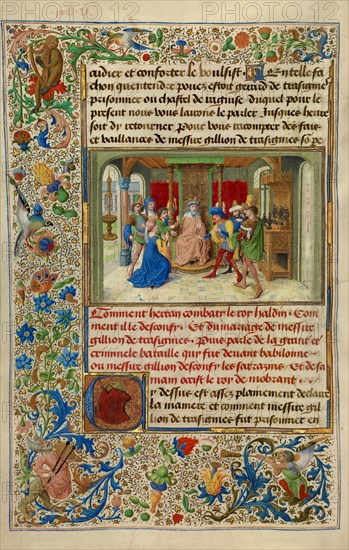 aidier et conforter le boulsist. Entelle fa
chon quentendre pouez estoit gerard de trasignies
prisonnier ou chastel de raguise duquel pour le
present nous vous lairons le parler Jusques heure
soit dy retourner Pour vous racompter des fais
et vaillances de messire gillion de trasignies so pe
Comment hertan combaty le roy haldin. Com
ment il le desconfy. Et du mariage de messire
gillion de trasignies. Puis parle de la grant et
criminele bataille quy fut devant babilonne
ou messire gillion desconfy les sarazins. Et de sa
main occist le roy de mobrant
Cy dessus est assez plainement declaire
la maniere et comment messire gil
lion de trasignies fut prisonnier en